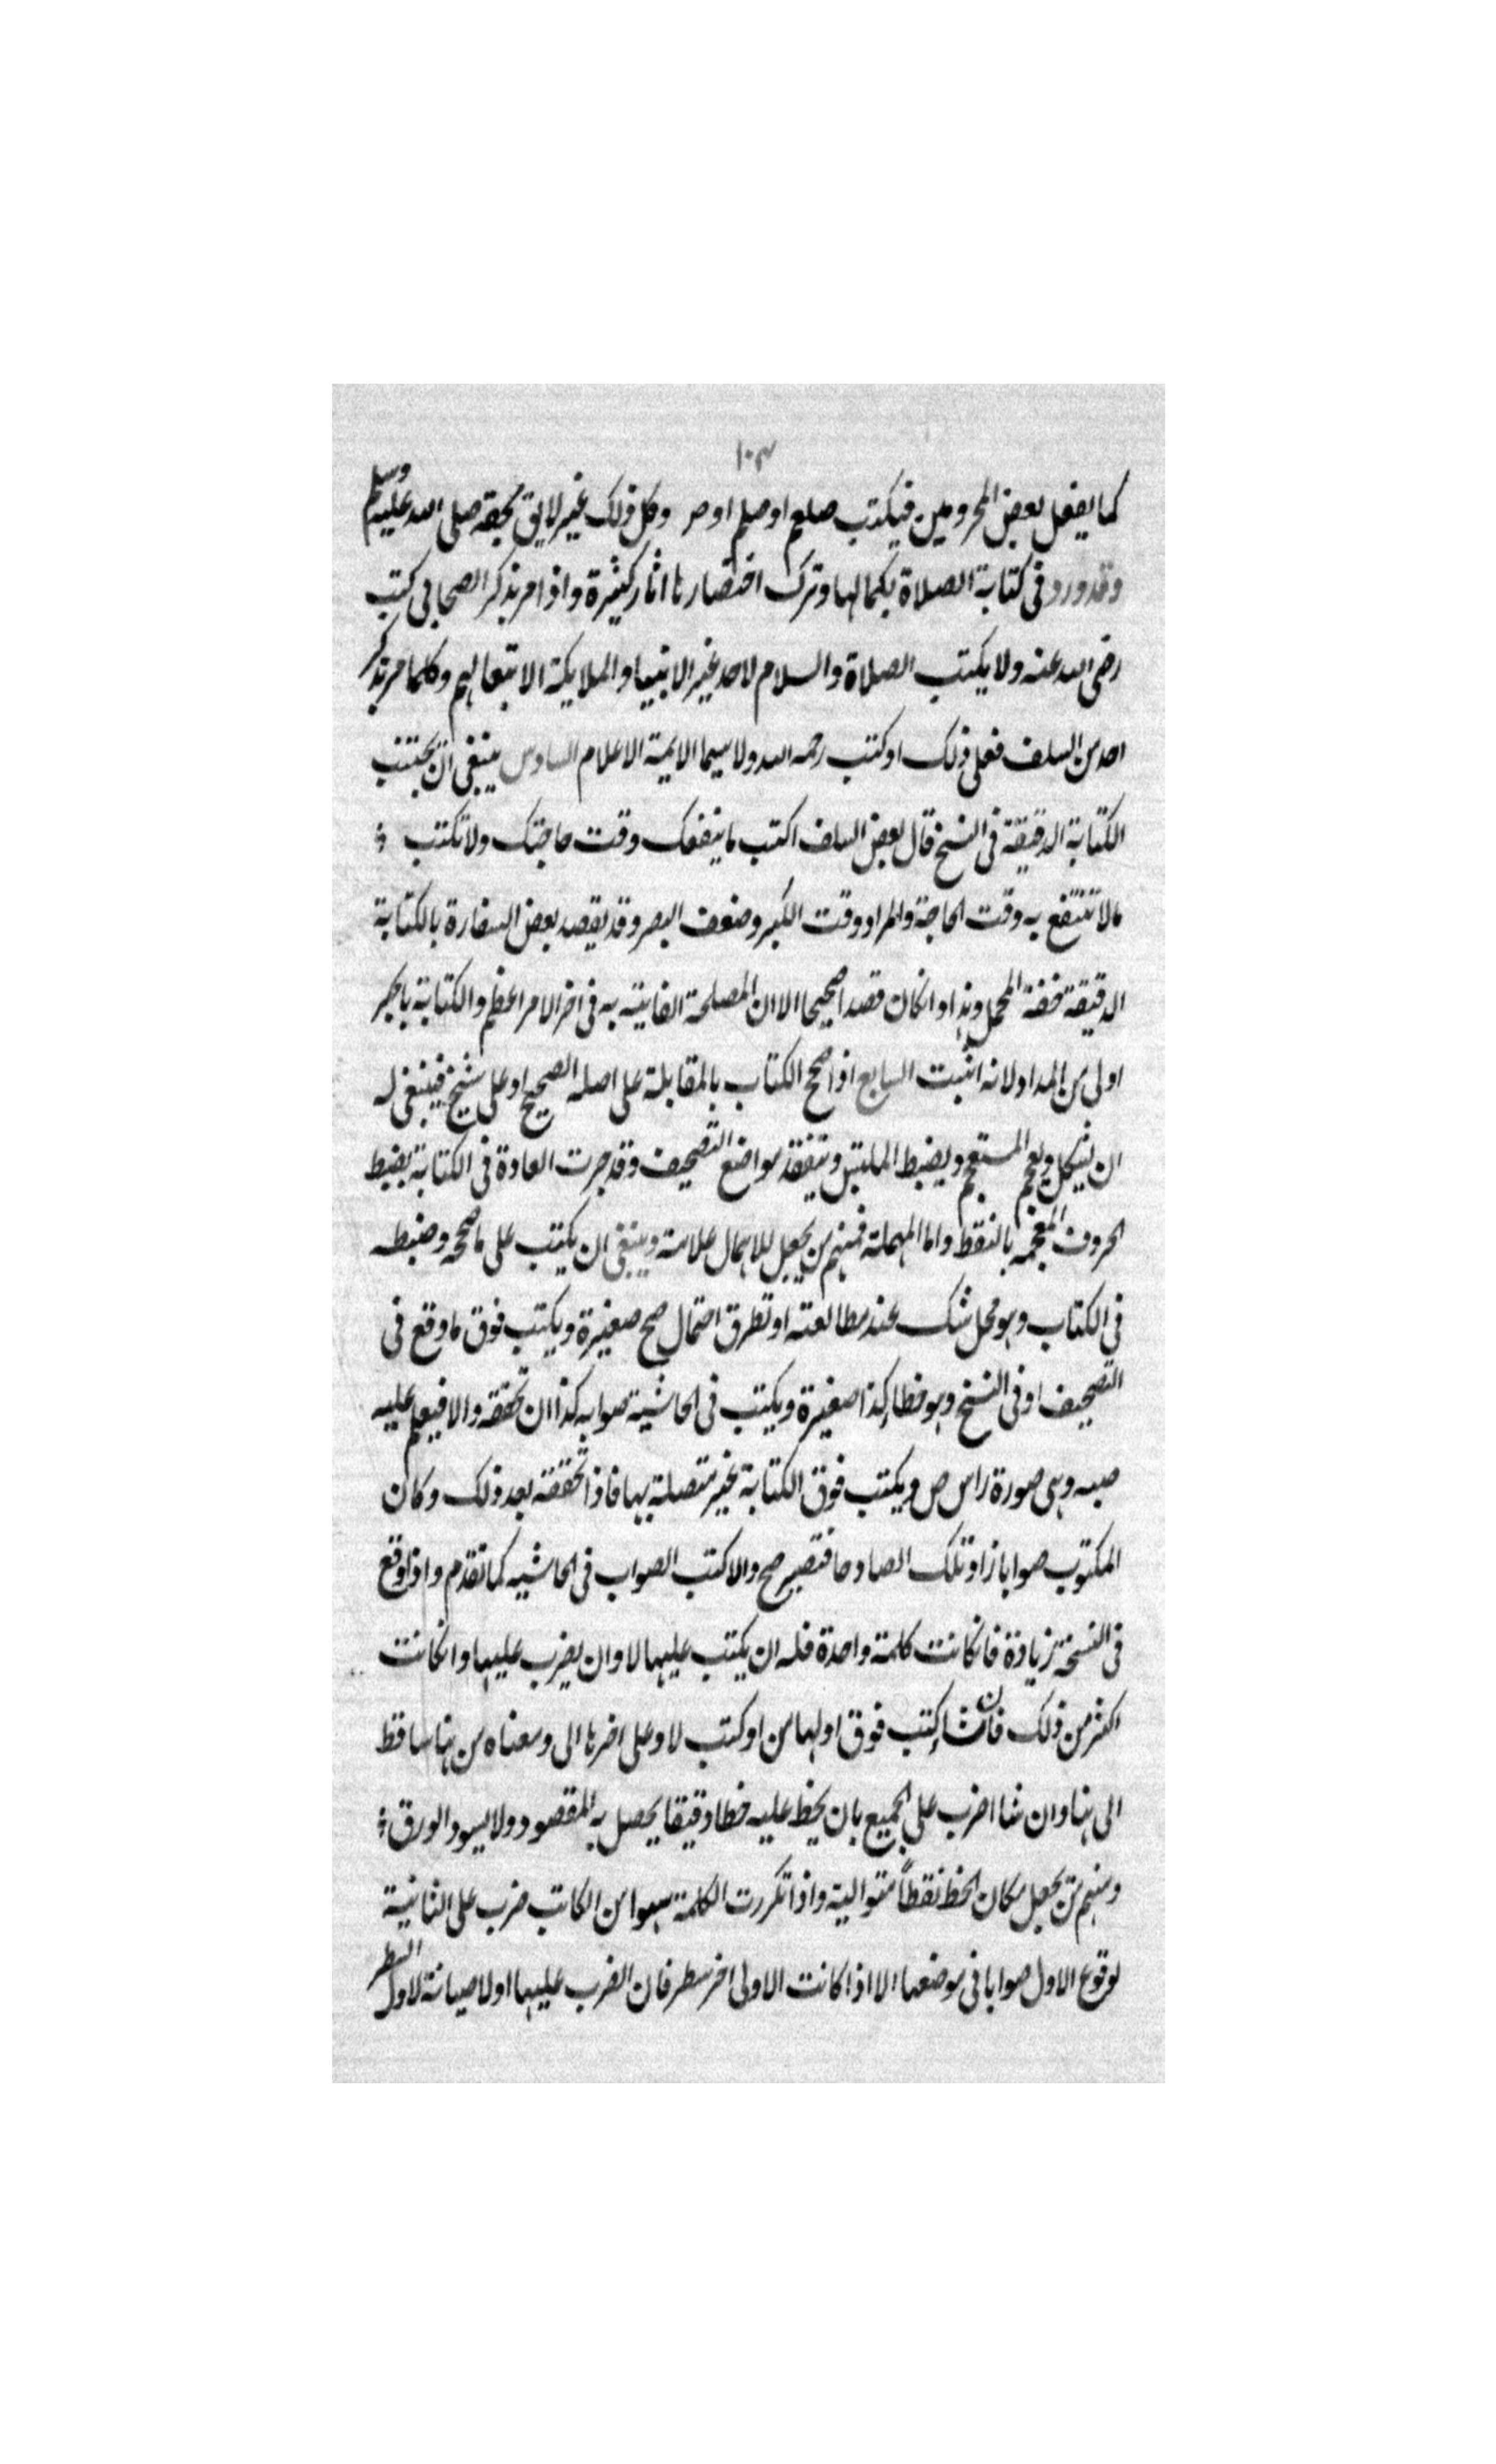 ١٠٣
كما يفعل بعض المحرومين فيكتب صلعم او صلم او صم وكل ذلك غير لايق بحقه صلى الله عليه وسلم
وقد ورد فى كتابة الصلاة بكمالها وترك اختصارها اثار كثيرة واذا مر بذكر الصحابى كتب
رضى الله عنه ولا يكتب الصلاة والسلام لاحد غير الانبيا والملايكة الا تبعا لهم وكلما مر بذكر
احد من السلف فعل ذلك او كتب رحمه الله ولا سيما الايمة الاعلام السادس ينبغى ان يجتنب
الكتابة الدقيقة فى النسخ قال بعض السلف اكتب ما ينفعك وقت حاجتك ولا تكتب
مالا تنتفع به وقت الحاجة والمراد وقت الكبر وضعف البصر وقد يقصد بعض السفارة بالكتابة
الدقيقة خفة المحمل وهذا وانكان قصدا صحيحا الا ان المصلحة الفايتة به فى اخر الامر اعظم والكتابة بالحبر
اولى من المداد لانه اثبت السابع اذا صحح الكتاب بالمقابلة على اصله الصحيح او على شيخ فينبغى له
ان يشكل ويعجم المستعجم ويضبط الملتبس ويتفقد مواضع التصحيف وقد جرت العادة فى الكتابة بضبط
الحروف المعجمه بالنقط واما المهملة فمنهم من يجعل للاهمال علامة وينبغى ان يكتب على ما صححه وضبطه
فى الكتاب وهو محل شك عند مطالعته او تطرق احتمال صح صغيرة ويكتب فوق ما وقع فى
التصحيف او فى النسخ وهو خطا كذا صغيرة ويكتب فى الحاشية صوابه كذا ان تحققه والا فيعلم عليه
ضبه وهى صورة راس ص ويكتب فوق الكتابة غير متصلة بها فاذا تحققه بعد ذلك وكان
المكتوب صوابا زاد تلك الصاد حا فتصير صح والا كتب الصواب فى الحاشيه كما تقدم واذا وقع
فى النسخة زيادة فانكانت كلمة واحدة فله ان يكتب عليها لا وان يضرب عليها وانكانت
اكثر من ذلك فان شا كتب فوق اولها من او كتب لا وعلى اخرها الى ومعناه من هنا ساقط
الى هنا وان شا اضرب على الجميع بان يخط عليه خطا دقيقا يحصل به المقصود ولا يسود الورق
ومنهم من يجعل مكان الخط نقطاً متوالية واذا تكررت الكلمة سهوا من الكاتب ضرب على الثانية
لوقوع الاول صوابا فى موضعها الا اذا كانت الاولى اخر سطر فان الضرب عليها اولا صيانة لاول السطر